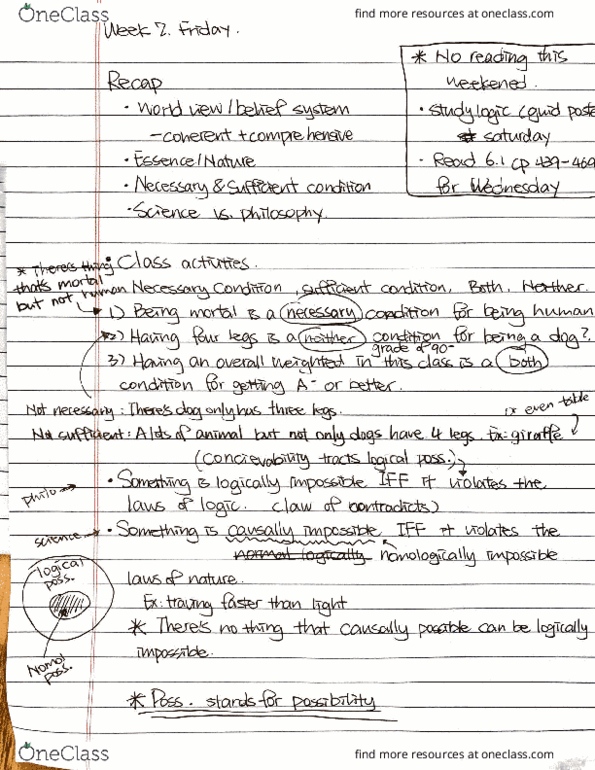 OneClass
find more resources at oneclass.com
Week 2. Friday.
* No reading this
weekened.
• study logic (guid poste
saturday
• Read 6.1 cp 439-469
for Wednesday
Recap
• World view/belief system
- coherent + comprehensive
• Essence/Nature
• Necessary & Sufficient condition
• Science vs. philosophy
* There's thing
that's mortal
but not human
Class activities.
Necessary Condition, sufficient condition, Both, Neither.
1) Being mortal is a necessary condition for being human
2) Having four legs is a neither condition for being a dog?
grade of 90-
3) Having an overall weighted in this class is a both
condition for getting A- or better.
Not necessary: There's dog only has three legs.
even table
Not sufficient: A lots of animal but not only dogs have 4 legs. Ex: giraffe
(Concievability tracts logical poss.)
philo →
• Something is logically impossible IFF it violates the
laws of logic. (law of contradicts)
science →
• Something is causally impossible IFF it violates the
normal logically nomologically impossible
laws of nature.
Ex: traving faster than light
* There's no thing that causally possible can be logically
impossible.
logical
poss.
Nomol
poss.
* Poss. stands for possibility
OneClass
find more resources at oneclass.com